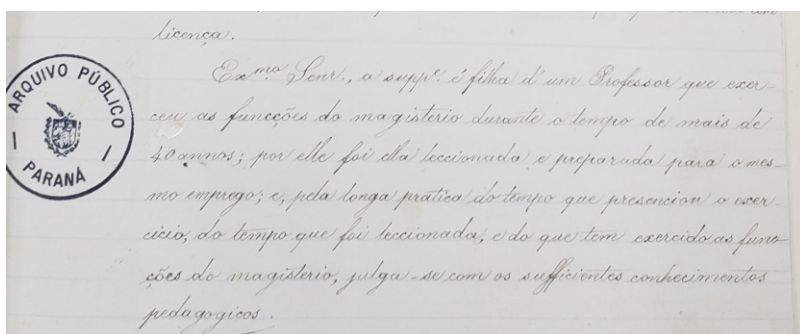 com
licença.
Exmo Senr., a suppe. é filha d'um Professor que exer-
ceu as funcções do magisterio durante o tempo de mais de
40 annos; por elle foi ella leccionada e preparada para o mes-
mo emprego; e, pela longa pratica do tempo que presenciou o exer-
cicio, do tempo que foi leccionada, e do que tem exercido as func-
ções do magisterio, julga-se com os sufficientes conhecimentos
pedagogicos.
ARQUIVO PÚBLICO
PARANÁ